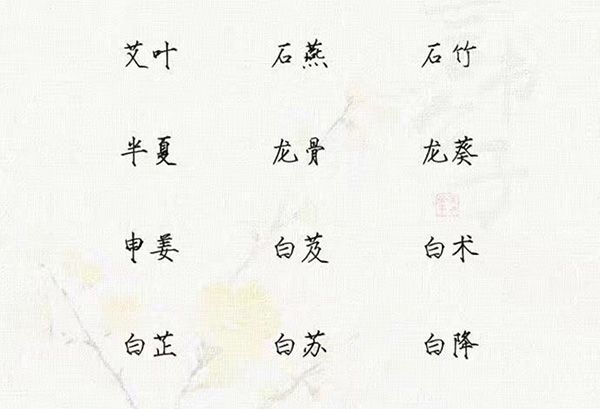 艾叶 石燕 石竹
半夏 龙骨 龙葵
申姜 白芨 白术
白芷 白苏 白降